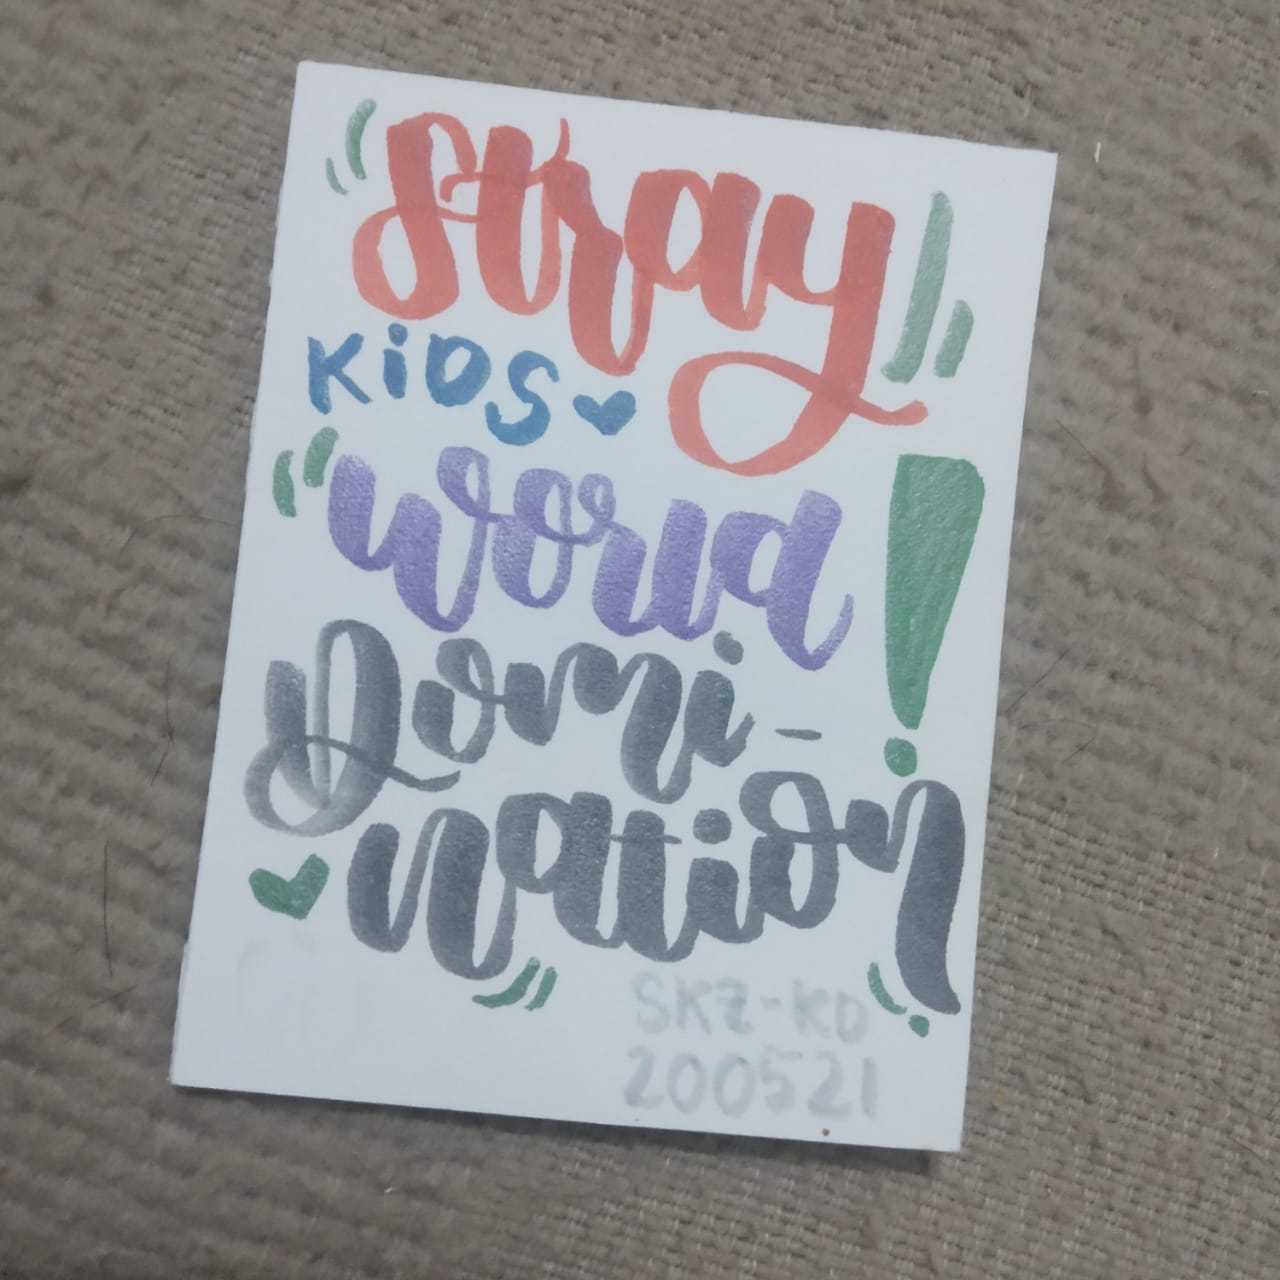 Stray
KiDS
world!
Domi-
nation
SKZ-KD
200521